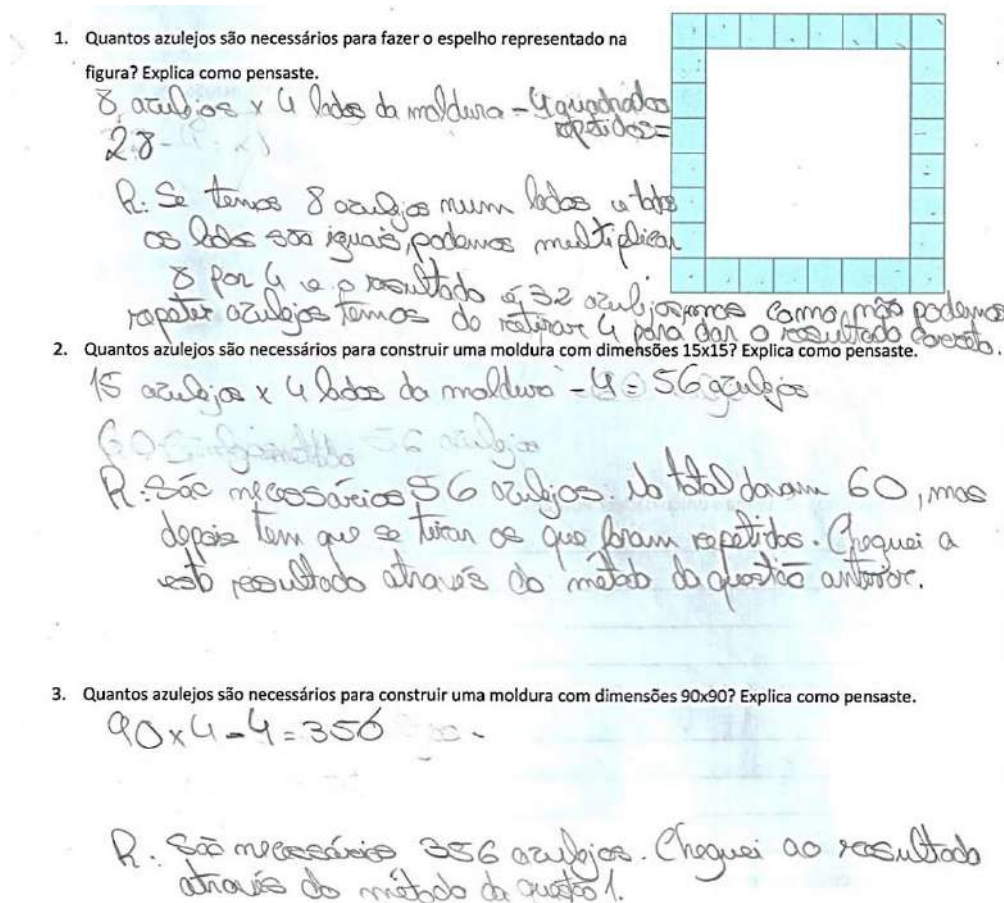 1. Quantos azulejos são necessários para fazer o espelho representado na
figura? Explica como pensaste.
8 azulejos x 4 lados da moldura - 4 quadrados
repetidos =
28
R: Se temos 8 azulejos num lados e todos
os lados são iguais, podemos multiplicar
8 por 4 e o resultado é 32 azulejos, mas como não podemos
repetir azulejos temos de retirar 4 para dar o resultado correto.
2. Quantos azulejos são necessários para construir uma moldura com dimensões 15x15? Explica como pensaste.
15 azulejos x 4 lados da moldura - 4 = 56 azulejos
56 azulejos
R: São necessários 56 azulejos. No total davam 60, mas
depois tem que se tirar os que foram repetidos. Cheguei a
este resultado através do método da questão anterior.
3. Quantos azulejos são necessários para construir uma moldura com dimensões 90x90? Explica como pensaste.
90x4-4=356
R: São necessários 356 azulejos. Cheguei ao resultado
através do método da questão 1.